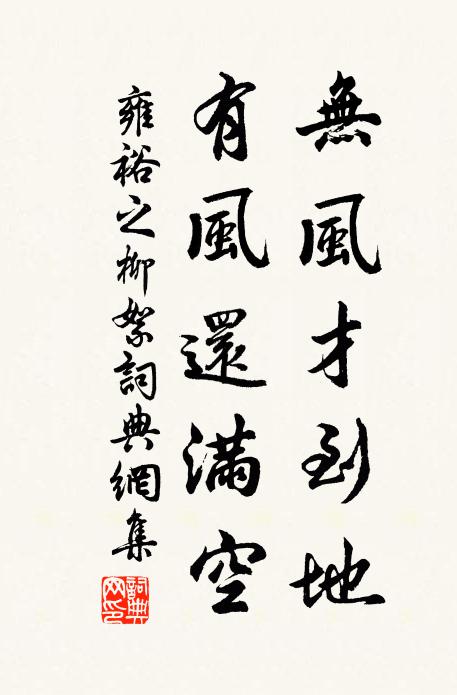 無風才到地
有風還滿空
雍裕之柳絮詞典網集
詞典網印